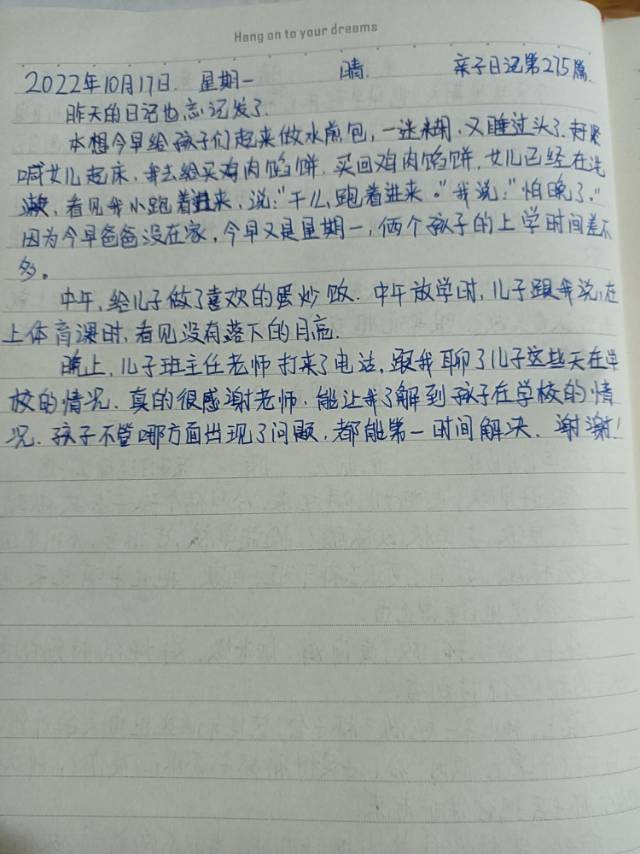 Hang on to your dreams
2022年10月17日. 星期一 晴. 亲子日记第275篇.
昨天的日记也忘记发了.
本想今早给孩子们起来做水煎包,一迷糊,又睡过头了.赶紧
喊女儿起床,我去给买鸡肉馅饼,买回鸡肉馅饼,女儿已经在洗
漱,看见我小跑着进来,说:"干么,跑着进来。"我说:"怕晚了."
因为今早爸爸没在家,今早又是星期一,俩个孩子的上学时间差不
多。
中午,给儿子做了喜欢的蛋炒饭.中午放学时,儿子跟我说,在
上体育课时,看见没有落下的月亮.
晚上,儿子班主任老师打来了电话,跟我聊了儿子这些天在学
校的情况.真的很感谢老师.能让我了解到孩子在学校的情
况.孩子不管哪方面出现了问题,都能第一时间解决.谢谢!